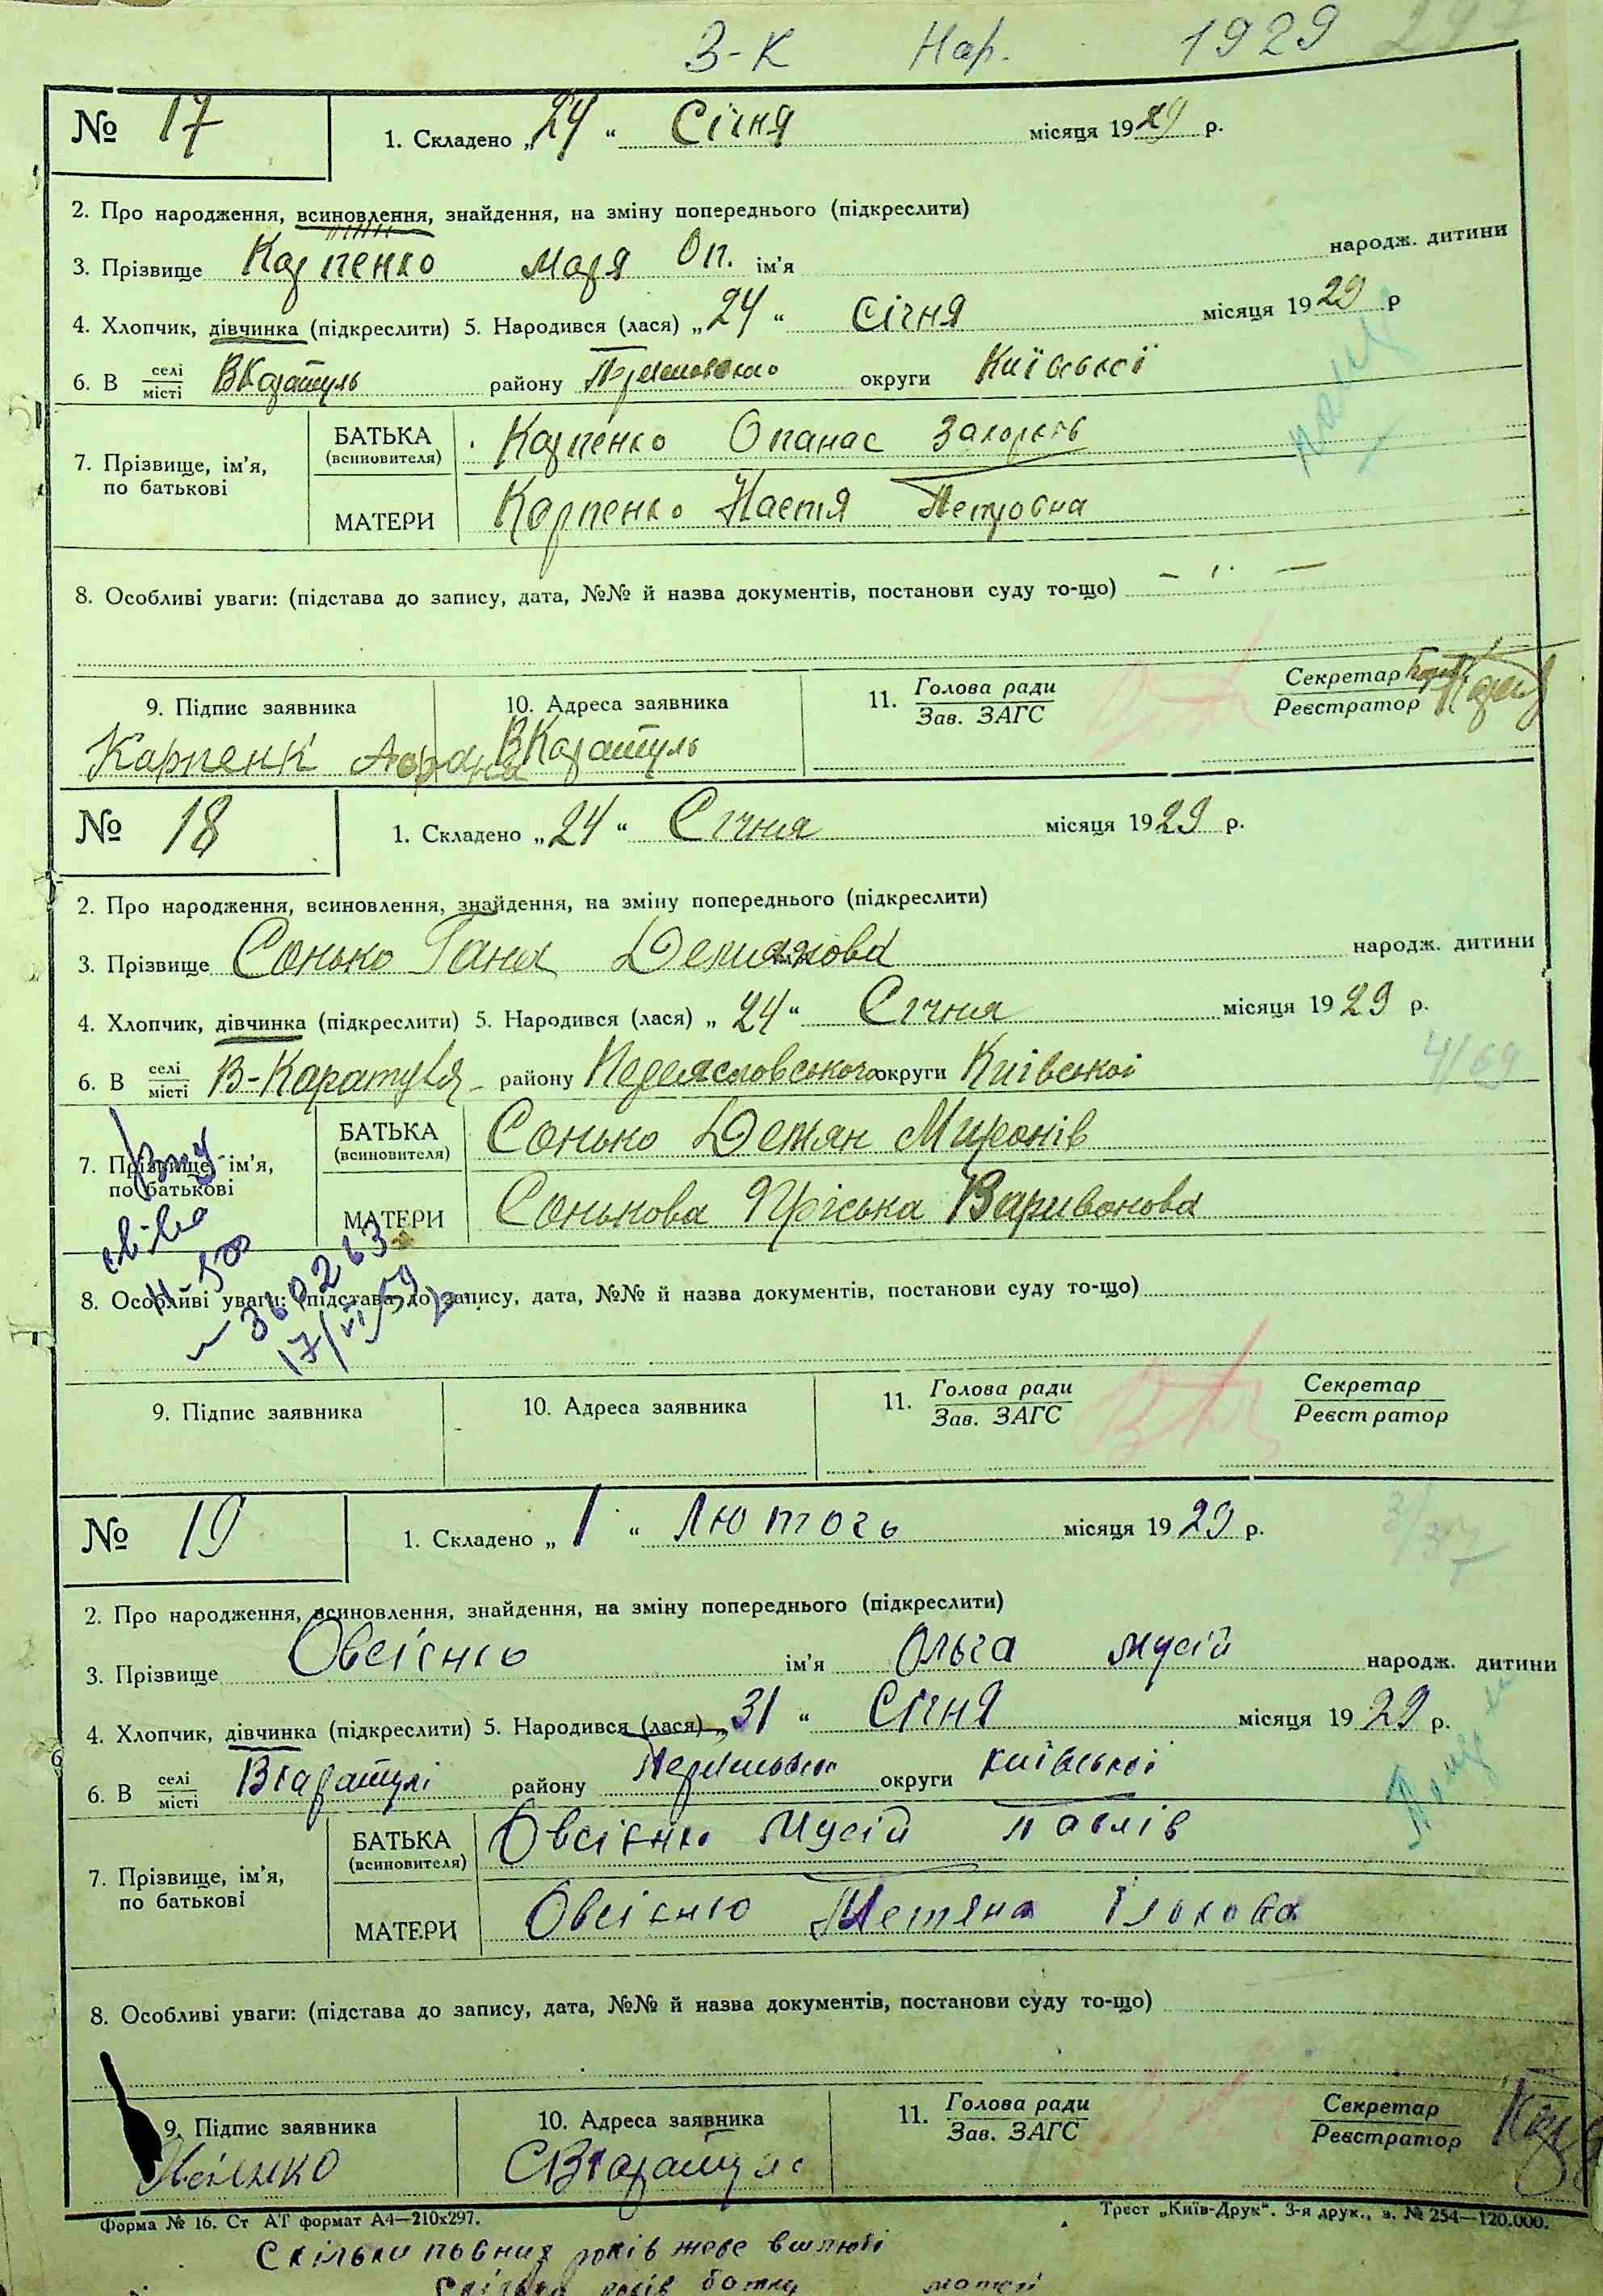 З-К Нар. 1929
№ 17 1. Складено „24“ Січня місяця 1929 р.
2. Про народження, всиновлення, знайдення, на зміну попереднього (підкреслити)
3. Прізвище Карпенко Маря Оп. ім’я народж. дитини
4. Хлопчик, дівчинка (підкреслити) 5. Народився (лася) „24“ Січня місяця 1929 р
6. В селі/місті ВКаратуль району округи Київської
7. Прізвище, ім’я, по батькові
БАТЬКА (всиновителя) Карпенко Опанас
МАТЕРИ Карпенко Настя Петровна
8. Особливі уваги: (підстава до запису, дата, №№ й назва документів, постанови суду то-що)
9. Підпис заявника 10. Адреса заявника 11. Голова ради/Зав. ЗАГС Секретар/Реєстратор
Карпенк ВКаратуль
№ 18 1. Складено „24“ Січня місяця 1929 р.
2. Про народження, всиновлення, знайдення, на зміну попереднього (підкреслити)
3. Прізвище Сонько Ганна Демянова народж. дитини
4. Хлопчик, дівчинка (підкреслити) 5. Народився (лася) „24“ Січня місяця 1929 р.
6. В селі/місті В-Каратуля району Переясловського округи Київської
4/69
7. Прізвище, ім’я, по батькові
БАТЬКА (всиновителя) Сонько Демян Миронів
МАТЕРИ Сонькова Пріська Варивонова
360263
8. Особливі уваги: (підстава до запису, дата, №№ й назва документів, постанови суду то-що)
17/VI 59
9. Підпис заявника 10. Адреса заявника 11. Голова ради/Зав. ЗАГС Секретар/Реєстратор
№ 19 1. Складено „1“ Лютого місяця 1929 р.
2. Про народження, всиновлення, знайдення, на зміну попереднього (підкреслити)
3. Прізвище Овсієнко ім’я Ольга Мусій народж. дитини
4. Хлопчик, дівчинка (підкреслити) 5. Народився (лася) „31“ Січня місяця 1929 р.
6. В селі/місті ВКаратулі району округи Київської
7. Прізвище, ім’я, по батькові
БАТЬКА (всиновителя) Овсієнко Мусій Павлів
МАТЕРИ Овсієнко Тетяна Ількова
8. Особливі уваги: (підстава до запису, дата, №№ й назва документів, постанови суду то-що)
9. Підпис заявника 10. Адреса заявника 11. Голова ради/Зав. ЗАГС Секретар/Реєстратор
Форма № 16. Ст АТ формат А4—210х297. Трест „Київ-Друк“. 3-я друк., з. № 254—120.000.
Скільки повних років живе в шлюбі
Скільки років батку матері